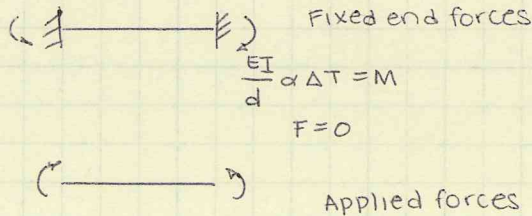 Fixed end forces
EI/d α ΔT = M
F = 0
Applied forces